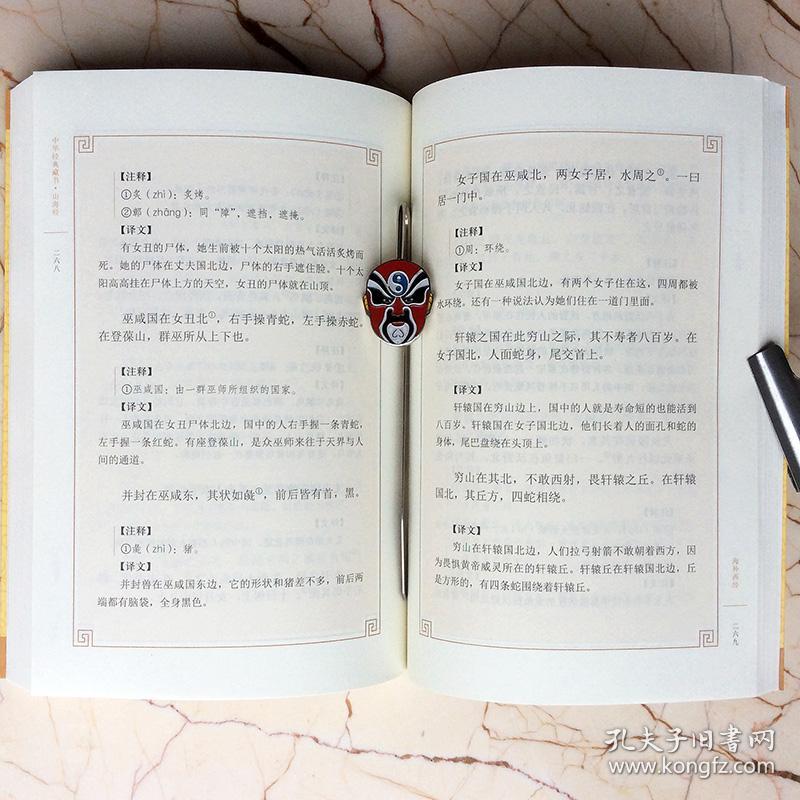 中华经典藏书·山海经
二六八
【注释】
①炙（zhì）：炙烤。
②鄣（zhāng）：同“障”，遮挡，遮掩。
【译文】
有女丑的尸体，她生前被十个太阳的热气活活炙烤而
死。她的尸体在丈夫国北边，尸体的右手遮住脸。十个太
阳高高挂在尸体上方的天空，女丑的尸体就在山顶。
巫咸国在女丑北①，右手操青蛇，左手操赤蛇。
在登葆山，群巫所从上下也。
【注释】
①巫咸国：由一群巫师所组织的国家。
【译文】
巫咸国在女丑尸体北边，国中的人右手握一条青蛇，
左手握一条红蛇。有座登葆山，是众巫师来往于天界与人
间的通道。
并封在巫咸东，其状如彘①，前后皆有首，黑。
【注释】
①彘（zhì）：猪。
【译文】
并封兽在巫咸国东边，它的形状和猪差不多，前后两
端都有脑袋，全身黑色。
女子国在巫咸北，两女子居，水周之①。一曰
居一门中。
【注释】
①周：环绕。
【译文】
女子国在巫咸国北边，有两个女子住在这，四周都被
水环绕。还有一种说法认为她们住在一道门里面。
轩辕之国在此穷山之际，其不寿者八百岁。在
女子国北，人面蛇身，尾交首上。
【译文】
轩辕国在穷山边上，国中的人就是寿命短的也能活到
八百岁。轩辕国在女子国北边，他们长着人的面孔和蛇的
身体，尾巴盘绕在头顶上。
穷山在其北，不敢西射，畏轩辕之丘。在轩辕
国北，其丘方，四蛇相绕。
【译文】
穷山在轩辕国北边，人们拉弓射箭不敢朝着西方，因
为畏惧黄帝威灵所在的轩辕丘。轩辕丘在轩辕国北边，丘
是方形的，有四条蛇围绕着轩辕丘。
海外西经
二六九
孔夫子旧书网
www.kongfz.com